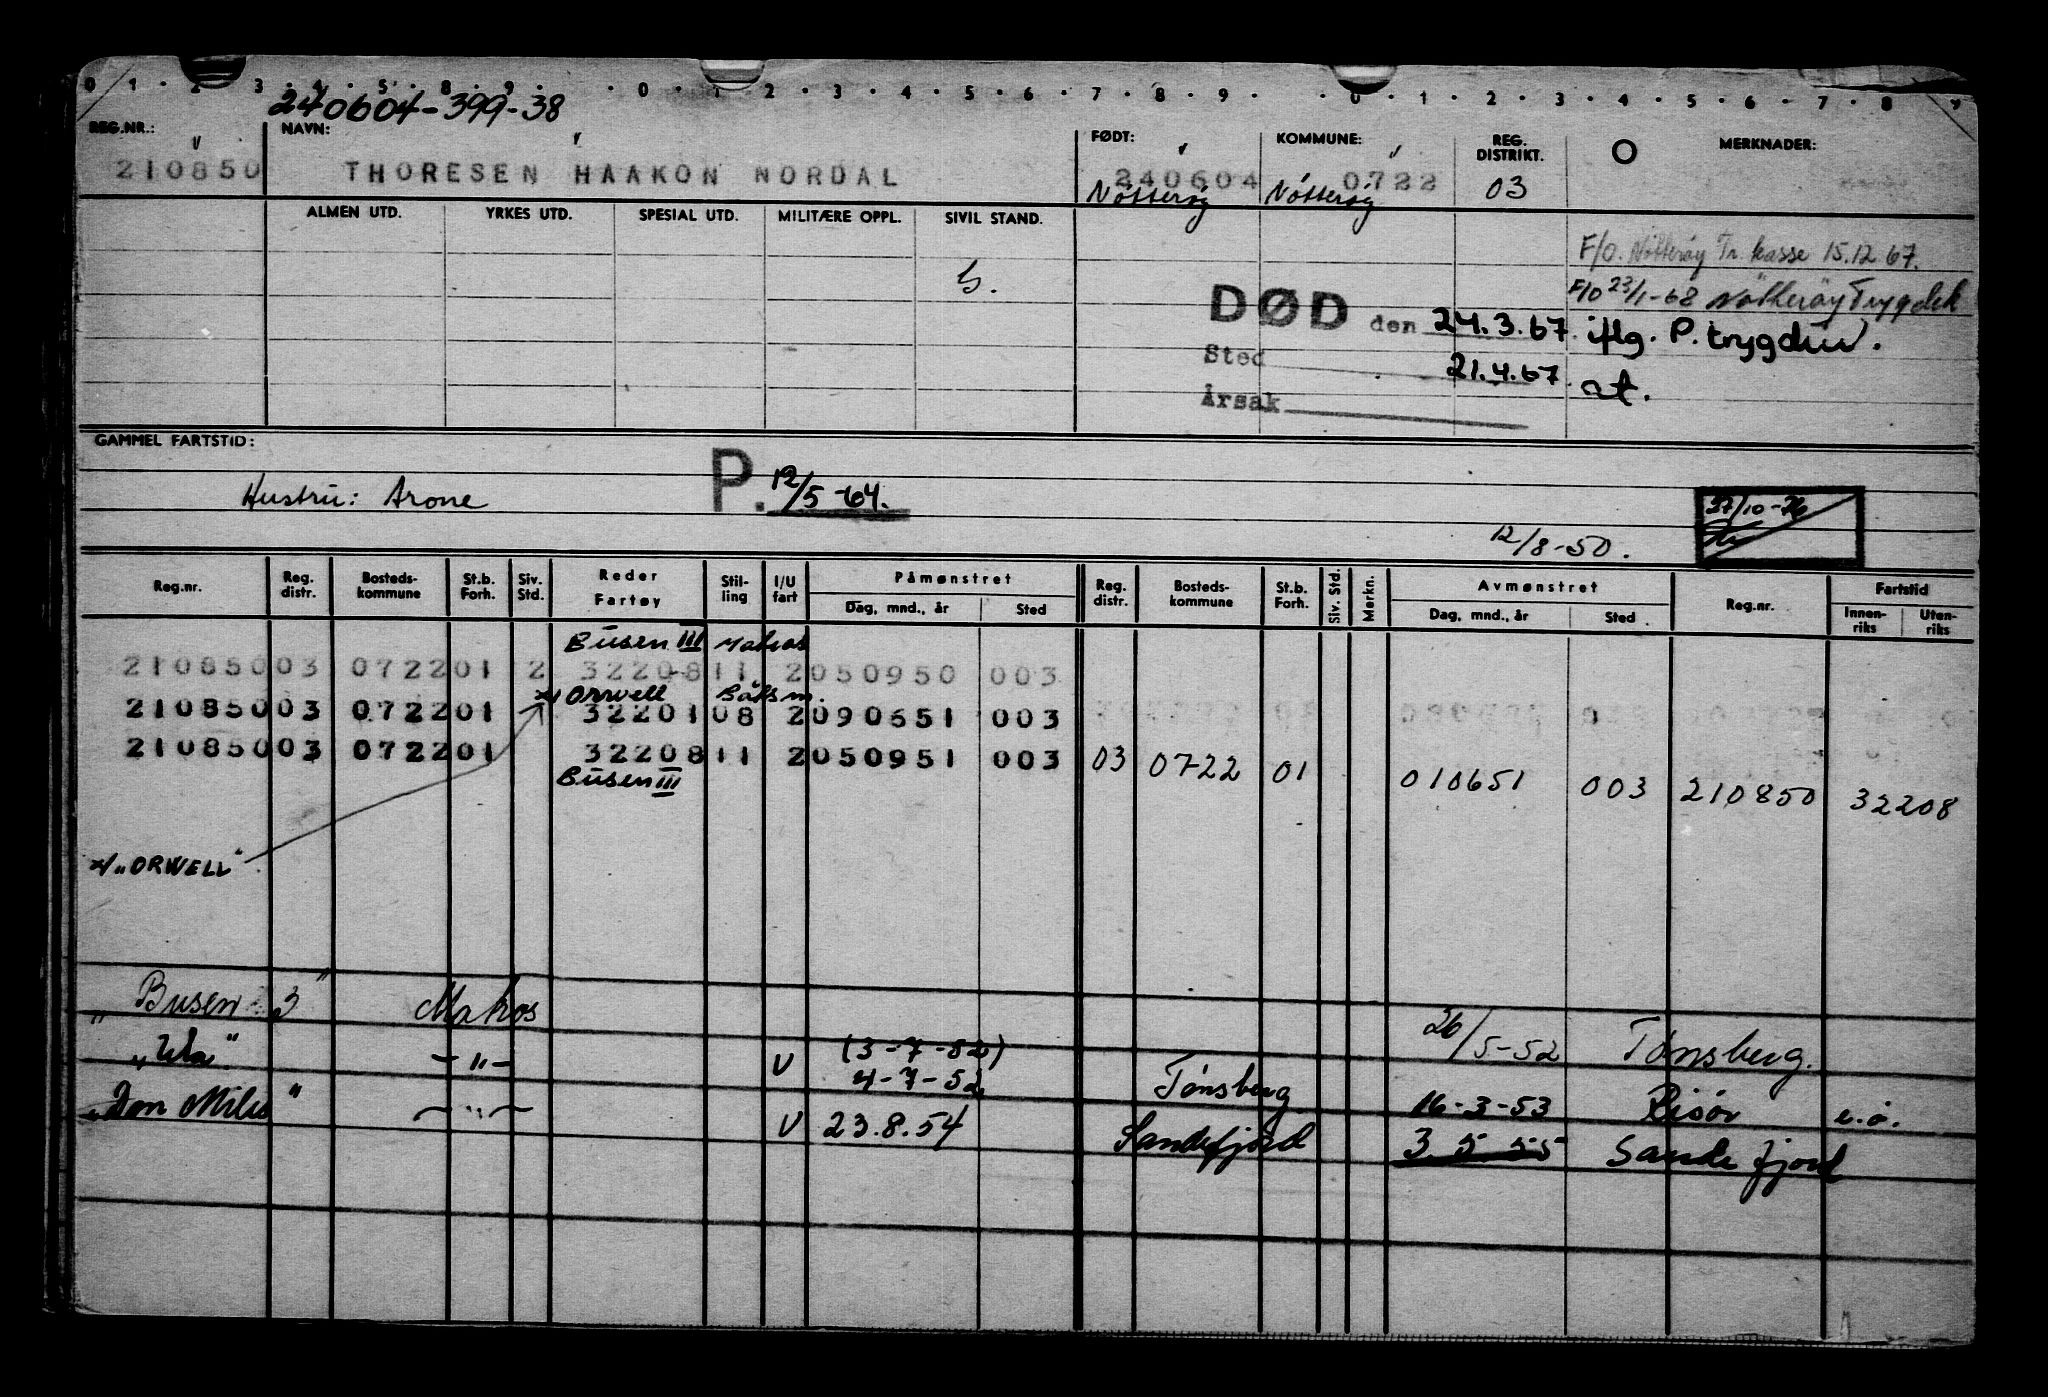 0 1 2 3 4 5 8 9 0 1 2 3 4 5 6 7 8 9 0 1 2 3 4 5 6 7 8 9
240604-399-38
REG.NR.: NAVN: FØDT: KOMMUNE: REG. DISTRIKT. MERKNADER:
210850 THORESEN HAAKON NORDAL 240604 0722 03
Nötteröy Nötteröy
ALMEN UTD. YRKES UTD. SPESIAL UTD. MILITÆRE OPPL. SIVIL STAND.
F/O. Nötteröy Tr. kasse 15.12.67.
G.
F/O 23/1-68 Nötteröy Trygdek
DØD den 24.3.67. iflg. P. trygden.
Sted 21.4.67. at.
Årsak
GAMMEL FARTSTID:
Hustru: Arone P. 12/5-64.
27/10-76
12/8-50.
Reg.nr. Reg. distr. Bosteds- kommune St.b. Forh. Siv. Std. Reder Fartøy Stil- ling I/U fart Påmønstret Reg. distr. Bosteds- kommune St.b. Forh. Siv. Std. Merkn. Avmønstret Reg.nr. Fartstid
Dag, mnd., år Sted Dag, mnd., år Sted Innen- riks Uten- riks
Busen III Matros
210850 03 0722 01 2 32208 11 2 050950 003
x/ Orwell Båtsm.
210850 03 0722 01 32201 08 2 090651 003
210850 03 0722 01 32208 11 2 050951 003 03 0722 01 010651 003 210850 32208
Busen III
x/ "ORWELL"
"Busen 3" Matros 26/5-52 Tønsberg.
"Ula" -"- U (3-7-52)
4-7-52 Tønsberg 16-3-53 Risør e.o.
"Don Miles" -"- U 23.8.54 Sandefjord 3.5.55 Sandefjord